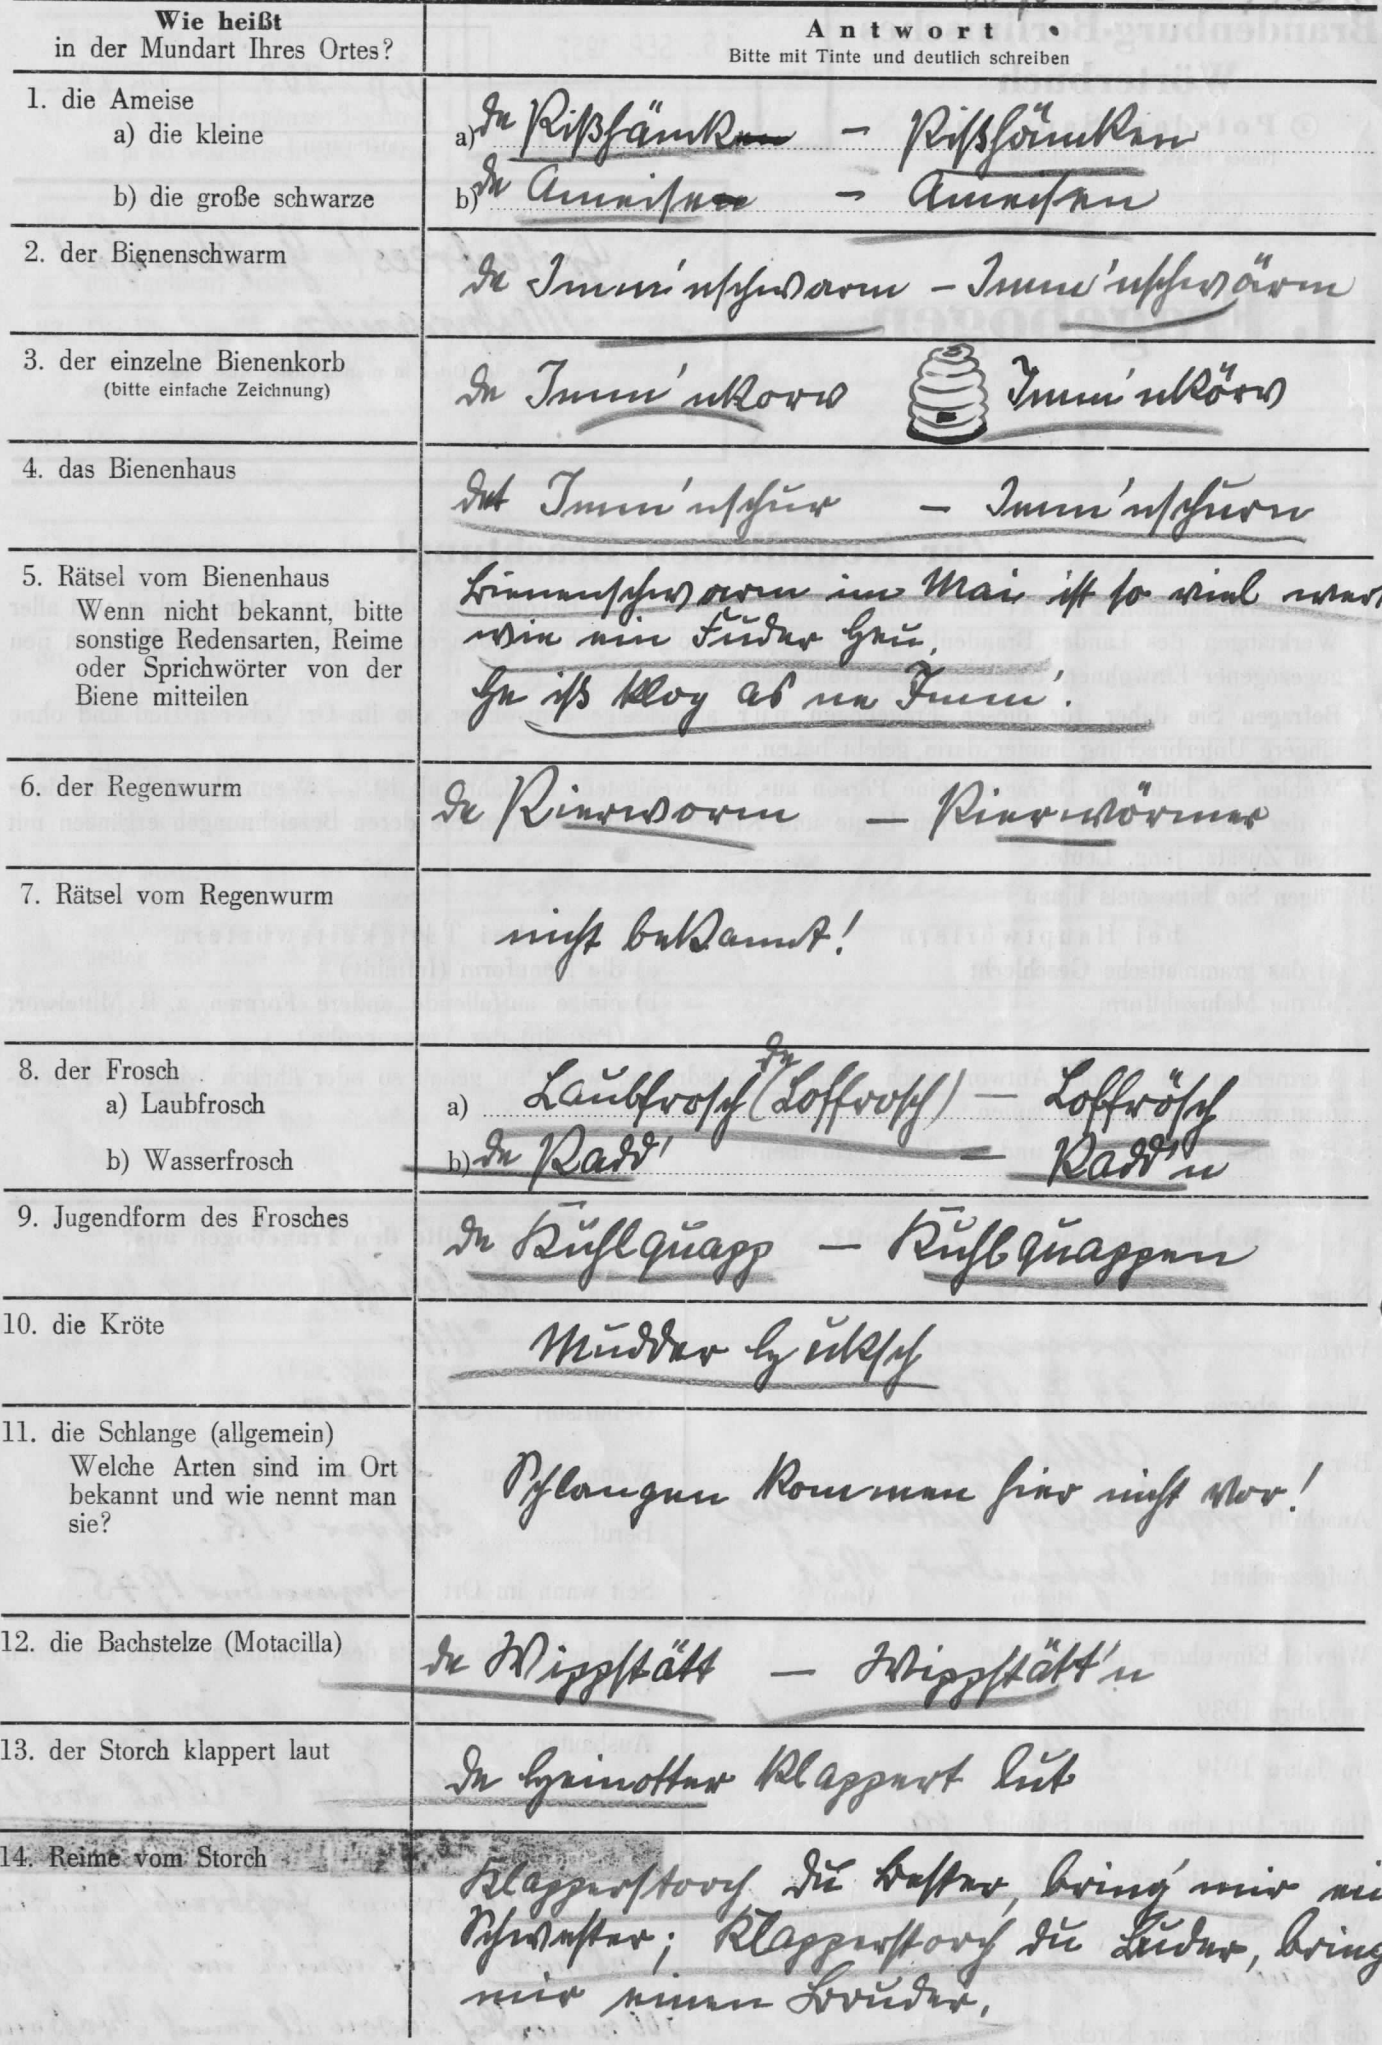 Wie heißt
in der Mundart Ihres Ortes?
Antwort
Bitte mit Tinte und deutlich schreiben
1. die Ameise
a) die kleine
a) de Pißhämk – Pißhämken
b) die große schwarze
b) de Ameise – Ameisen
2. der Bienenschwarm
de Imm'nschwarm – Imm'nschwärm
3. der einzelne Bienenkorb
(bitte einfache Zeichnung)
de Imm'nkorw Imm'nkörw
4. das Bienenhaus
det Imm'nschur – Imm'nschurn
5. Rätsel vom Bienenhaus
Wenn nicht bekannt, bitte
sonstige Redensarten, Reime
oder Sprichwörter von der
Biene mitteilen
Bienenschwarm im Mai ist so viel wert
wie ein Fuder Heu.
He iß klog as ne Imm'.
6. der Regenwurm
de Pierworm – Pierwörmer
7. Rätsel vom Regenwurm
nicht bekannt!
8. der Frosch
a) Laubfrosch
a) Laubfrosch (de Loffrosch) – Loffrösch
b) Wasserfrosch
b) de Padd' – Padd'n
9. Jugendform des Frosches
de Kuhlquapp – Kuhlquappen
10. die Kröte
Mudder Huksch
11. die Schlange (allgemein)
Welche Arten sind im Ort
bekannt und wie nennt man
sie?
Schlangen kommen hier nicht vor!
12. die Bachstelze (Motacilla)
de Wippstätt – Wippstätt'n
13. der Storch klappert laut
de Heinotter klappert lut
14. Reime vom Storch
Klapperstorch du bester, bring' mir ei
Schwester; Klapperstorch du Luder, bring
mir einen Bruder.